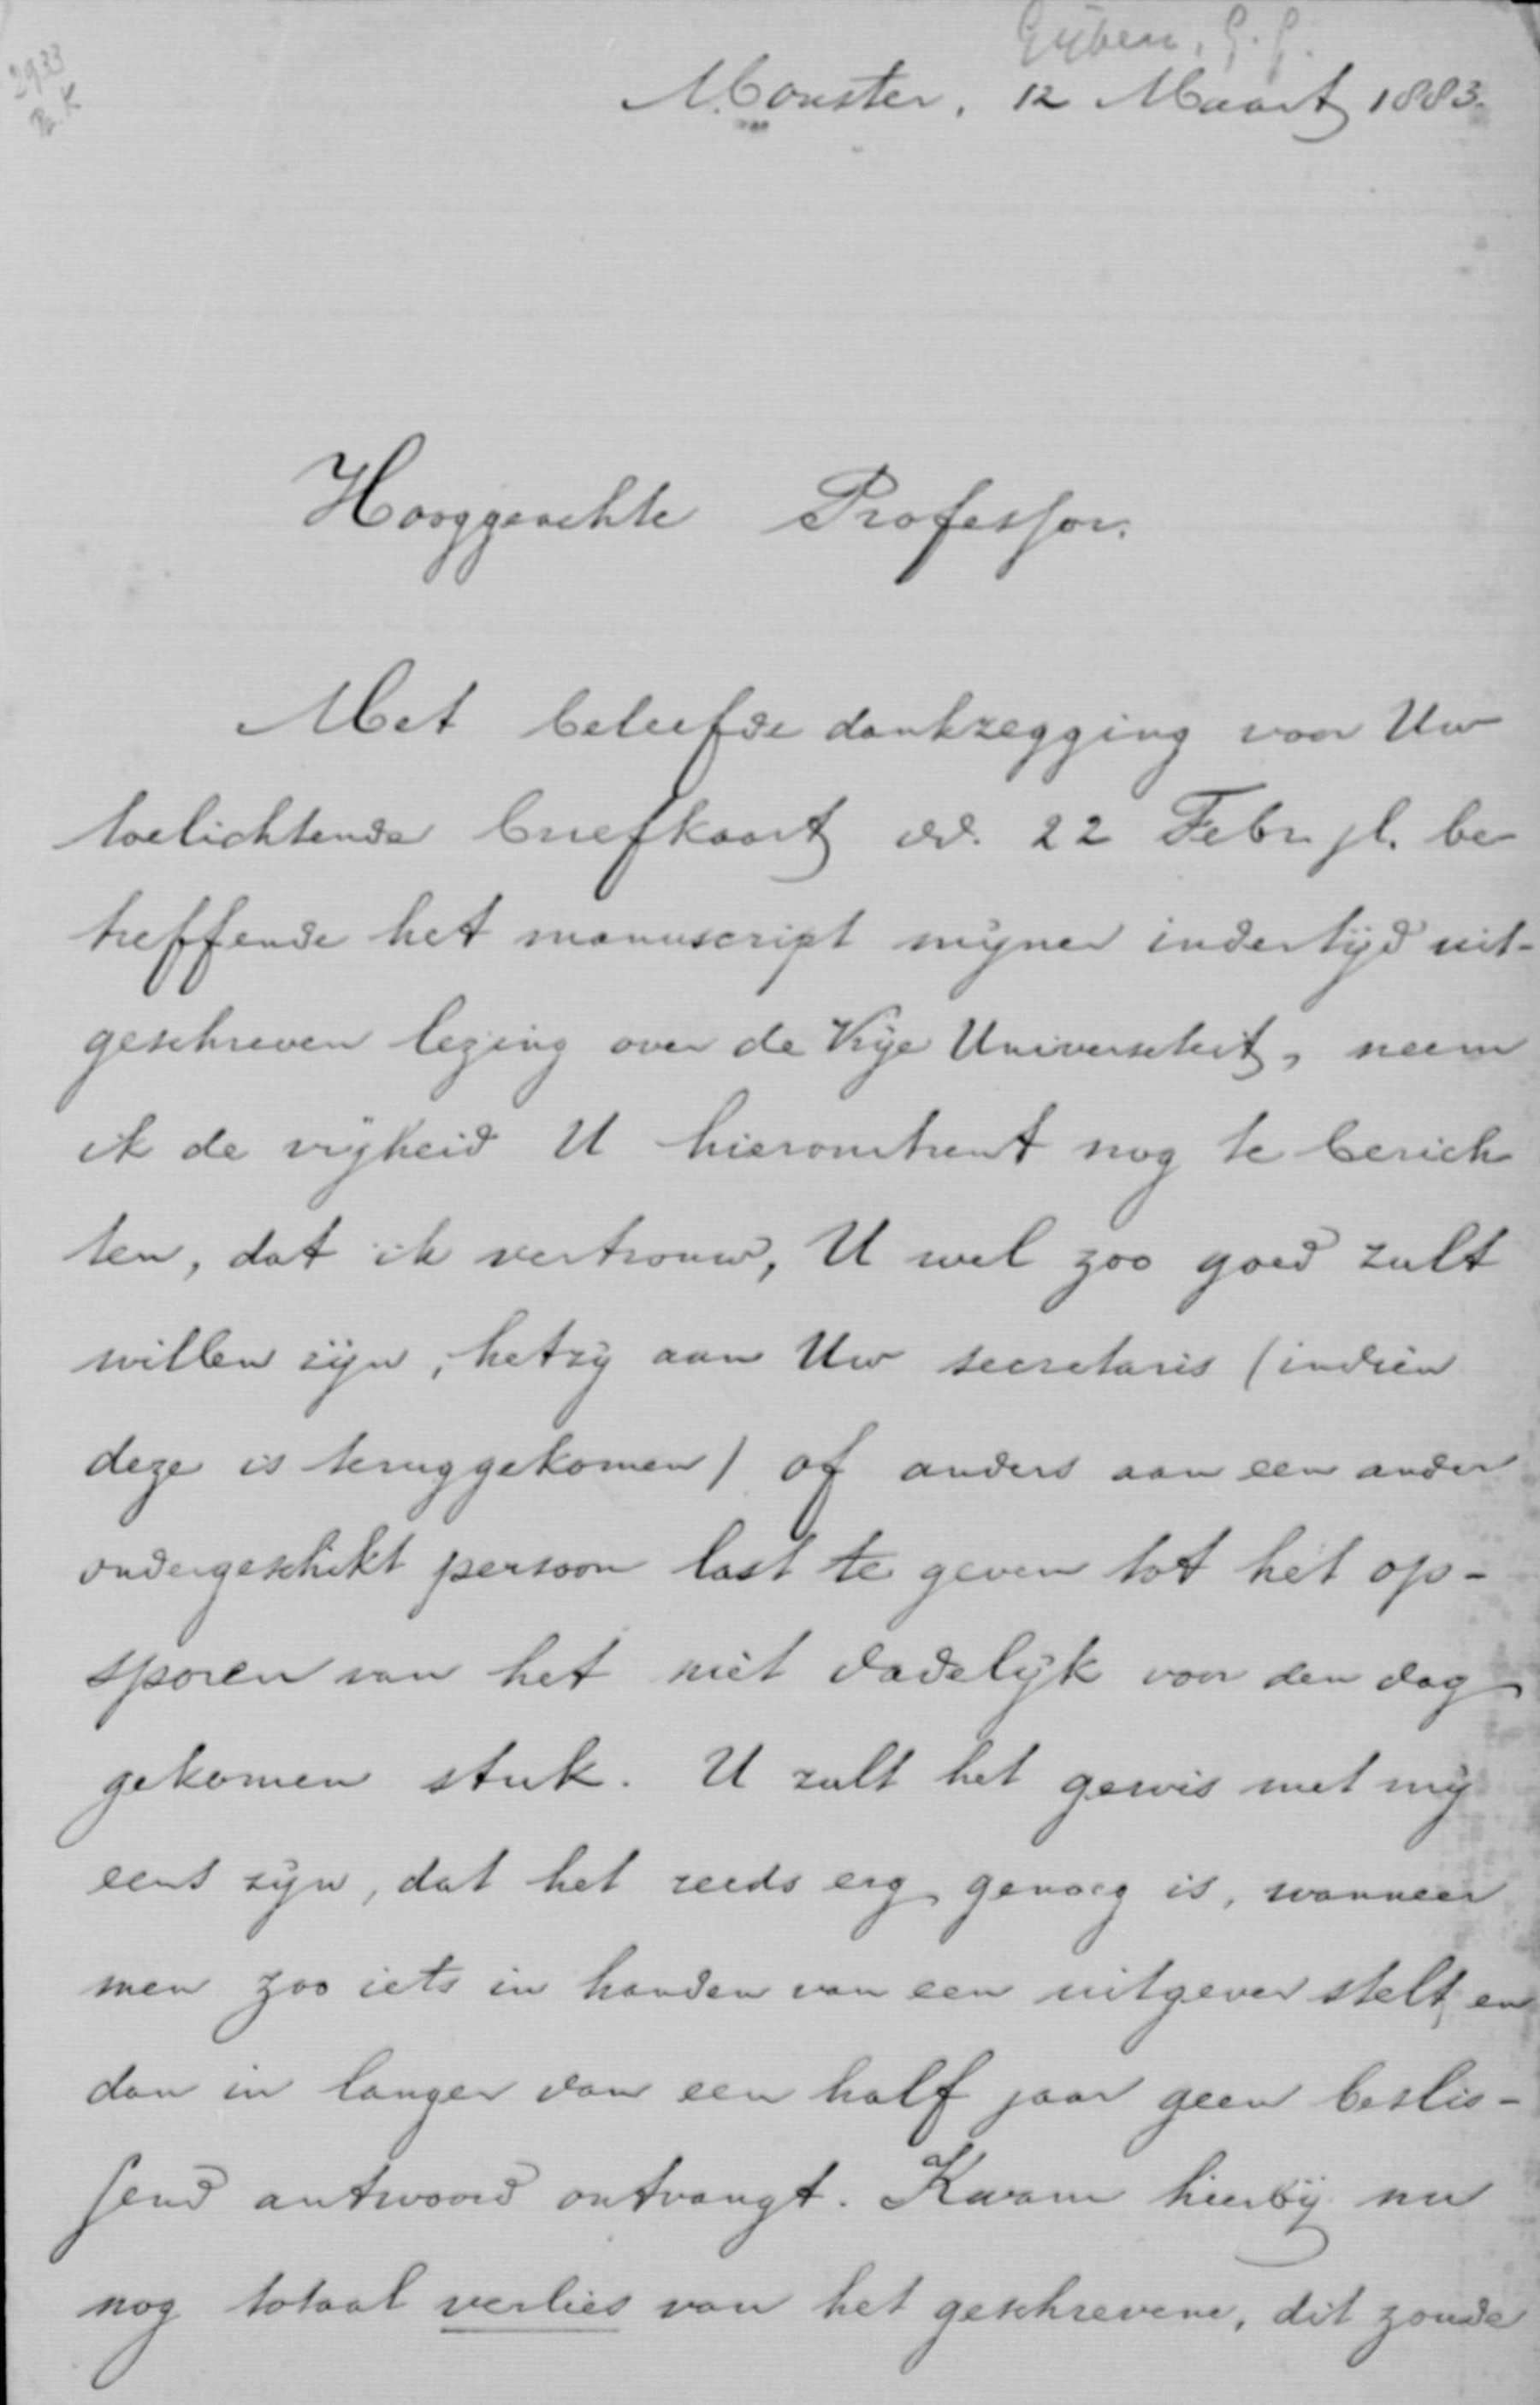 2933
Gijben, G. J.
Monster, 12 Maart 1883.
Hooggeachte Professor.
Met beleefde dankzegging voor Uw
toelichtende briefkaart dd. 22 Febr. jl. be
treffende het manuscript mijner indertijd uit-
geschreven lezing over de Vrije Universiteit, neem
ik de vrijheid U hieromtrent nog te berich
ten, dat ik vertrouw, U wel zoo goed zult
willen zijn, hetzij aan Uw secretaris (indien
deze is teruggekomen) of anders aan een ander
ondergeschikt persoon last te geven tot het op-
sporen van het niet dadelijk voor den dag
gekomen stuk. U zult het gewis met mij
eens zijn, dat het reeds erg genoeg is, wanneer
men zoo iets in handen van een uitgever stelt, en
dan in langer dan een half jaar geen beslis-
send antwoord ontvangt. Kwam hierbij nu
nog totaal verlies van het geschrevene, dit zoude